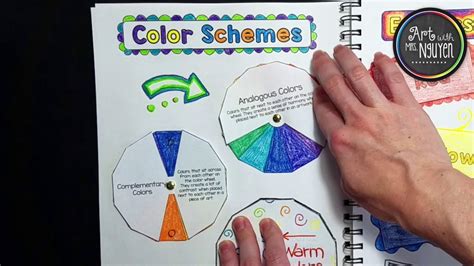 Color Schemes
Art with
Mrs.
Nguyen
Analogous Colors
Colors that sit next to each other on the
color wheel.
They create a sense of harmony when
placed next to each other in an artwork.
Complementary
Colors
Colors that sit across
from each other on
the color wheel.
They create a lot of
contrast when placed
next to each other in a
piece of art.
Warm